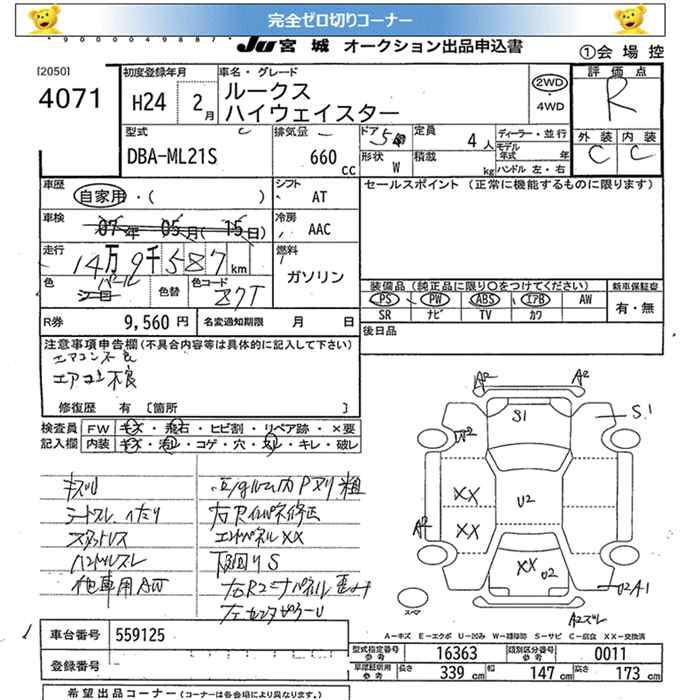 完全ゼロ切りコーナー
9 0 0 0 0 4 9 8 8 7
JU 宮城 オークション出品申込書 ①会場控
[2050]
4071
初度登録年月 H24 2月
車名・グレード ルークス
ハイウェイスター
2WD
・4WD
評価点 R
外装 C 内装 C
型式 DBA-ML21S
排気量 660 cc
ドア 5
形状 W
定員 4人
積載 kg
ディーラー・並行
モデル年式 年
ハンドル 左・右
車歴 自家用・( )
シフト AT
セールスポイント (正常に機能するものに限ります)
車検 07年 05月(15日)
冷房 AAC
走行 14万9千587km
燃料 ガソリン
色 パール 色替 色コード Z7T
装備品 (純正品に限り○をつけてください)
新車保証書 有・無
PS PW ABS エアB AW
SR ナビ TV カワ
R券 9,560円 名変通知期限 月 日
後日品
注意事項申告欄 (不具合内容等は具体的に記入して下さい)
エアコン不良
エアコン不良
修復歴 有 [箇所 ]
検査員 FW キズ・飛石・ヒビ割・リペア跡・×要
記入欄 内装 キズ・汚レ・コゲ・穴・スレ・キレ・破レ
キズル
シートスレ、ヘタリ
スタットレス
ハンドルスレ
他車用AW
右Rインパネ修正
エンドパネルXX
下回りS
右Rエプロンパネル歪み
A2 A2
S1 S1
W2
XX U2
A2 XX
XX U2
U2A1
A2ズレ
スペア
A-キズ E-エクボ U-凹み W-補修跡 S-サビ C-腐食 XX-交換済
車台番号 559125
登録番号
型式指定番号 参考 16363 類別区分番号 参考 0011
車庫証明用 参考 長さ 339cm 幅 147cm 高さ 173cm
希望出品コーナー (コーナーは各会場により異なります。)